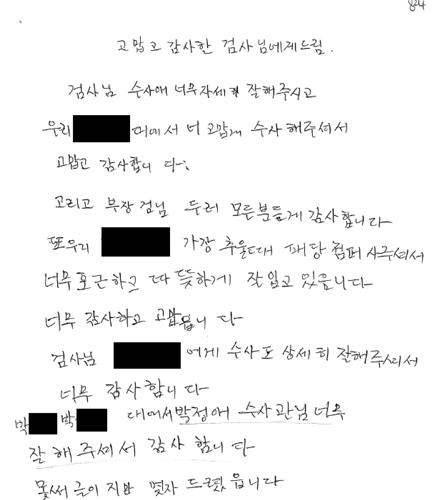 824
고맙고 감사한 검사님에게드림.
검사님 수사애 너무자세히 잘해주시고
우리 대에서 너 고맙게 수사해주셔서
고맙고 감사합니다.
고리고 부장검님 두러 모든분들게 감사합니다
또우리 가장 추울대 패당 점퍼 사주셔서
너무 포근하고 따뜻하게 잘입고있읍니다
너무 감사하고 고맙읍니다
검사님 어게 수사도 상세히 잘해주시서
너무 감사합니다
박 박 대에서박정애 수사관님너무
잘해주셔서 감사합니다
못써 글이 지만 몇자 드렸읍니다